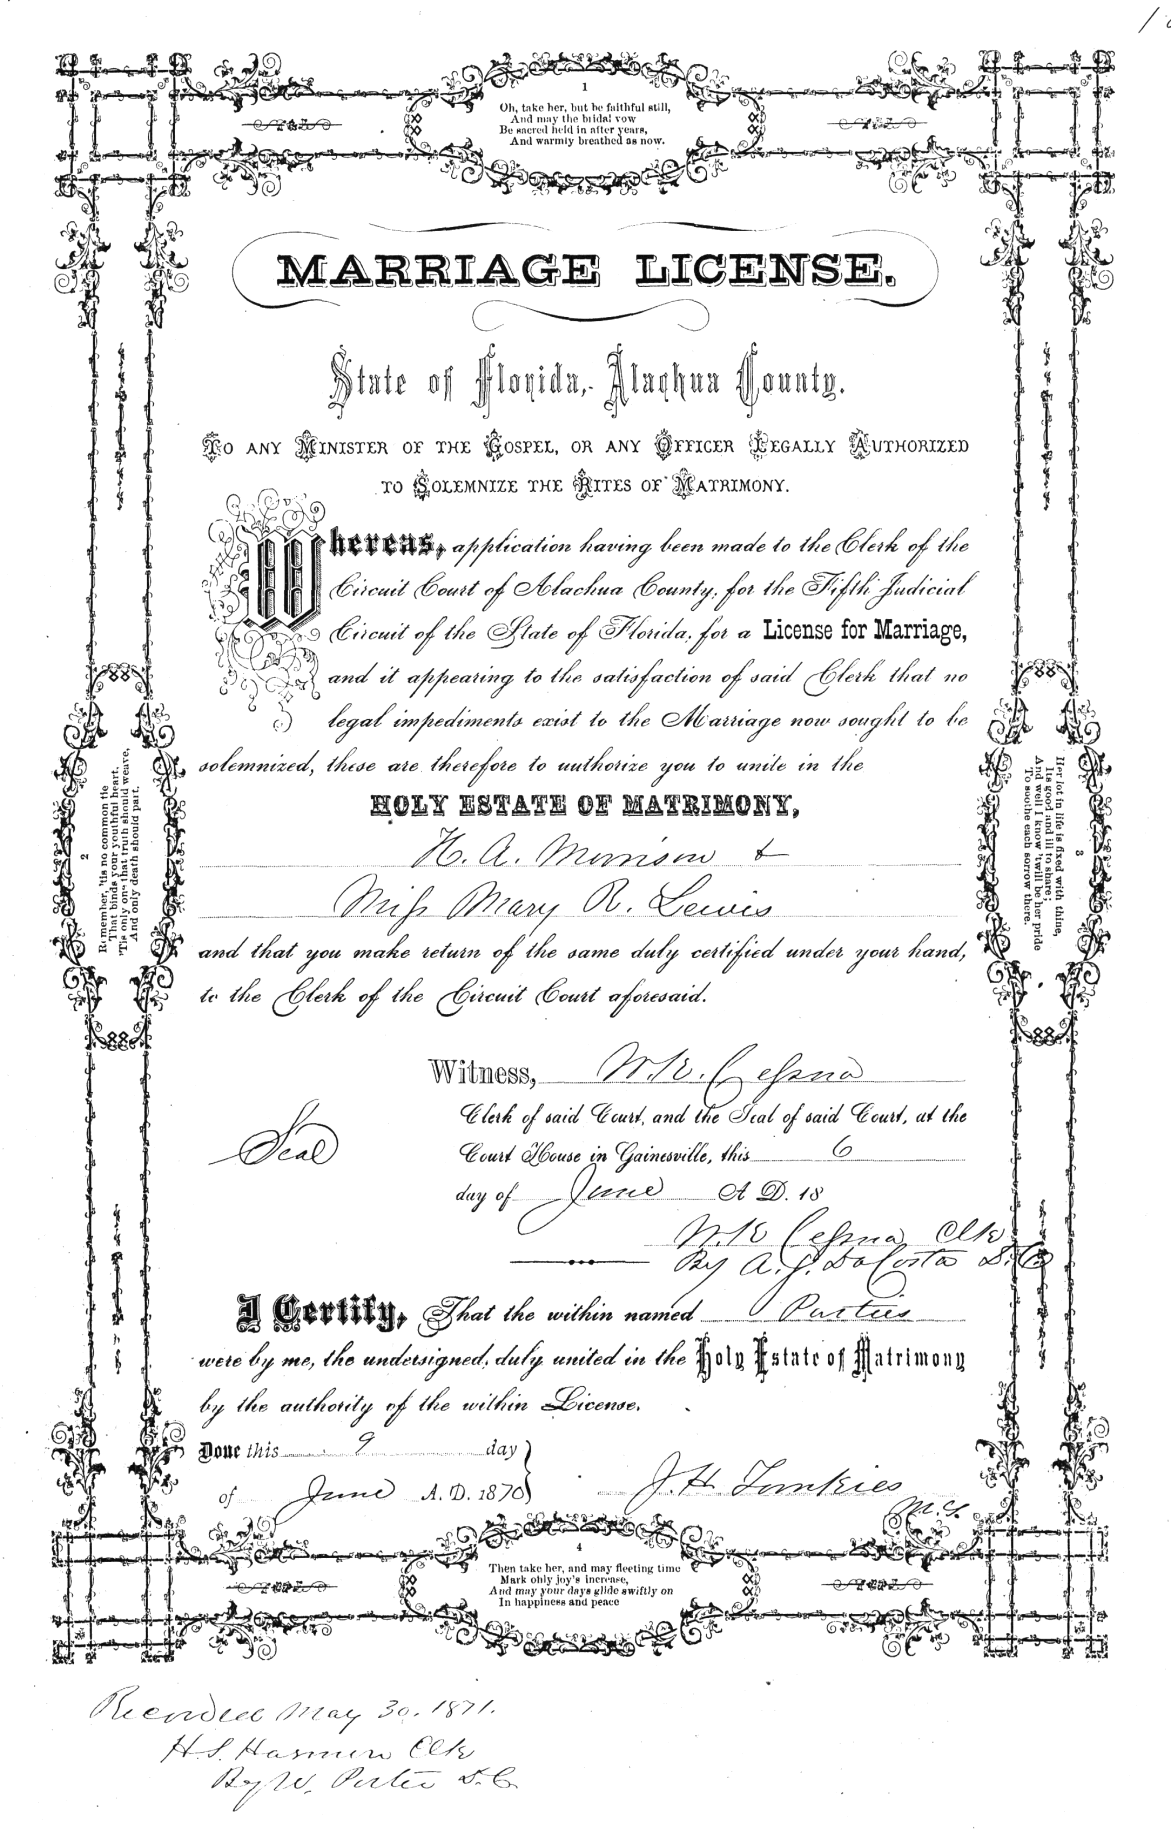 1
Oh, take her, but be faithful still,
And may the bridal vow
Be sacred held in after years,
And warmly breathed as now.
MARRIAGE LICENSE.
State of Florida, Alachua County.
TO ANY MINISTER OF THE GOSPEL, OR ANY OFFICER LEGALLY AUTHORIZED
TO SOLEMNIZE THE RITES OF MATRIMONY.
Whereas, application having been made to the Clerk of the
Circuit Court of Alachua County, for the Fifth Judicial
Circuit of the State of Florida, for a License for Marriage,
and it appearing to the satisfaction of said Clerk that no
legal impediments exist to the Marriage now sought to be
solemnized, these are therefore to authorize you to unite in the
HOLY ESTATE OF MATRIMONY,
H. A. Morrison &
Miss Mary R. Lewis
and that you make return of the same duly certified under your hand,
to the Clerk of the Circuit Court aforesaid.
2
Remember, 'tis no common tie
That binds your youthful heart.
'Tis only one that truth should weave,
And only death should part.
3
Her lot in life is fixed with thine,
Its good and ill to share;
And well I know 'twill be her pride
To soothe each sorrow there.
Witness, W. K. Cessna
Clerk of said Court, and the Seal of said Court, at the
Seal
Court House in Gainesville, this 6
day of June A. D. 18
W. K Cessna Clk
By A. J. DaCosta D.C.
I Certify, That the within named Parties
were by me, the undersigned, duly united in the Holy Estate of Matrimony
by the authority of the within License.
Done this 9 day
of June A. D. 1870
J. H. Tomkies
M.G.
4
Then take her, and may fleeting time
Mark only joy's increase,
And may your days glide swiftly on
In happiness and peace
Recorded May 30. 1871.
H. S. Harmon Clk
By W. Porter D. C.